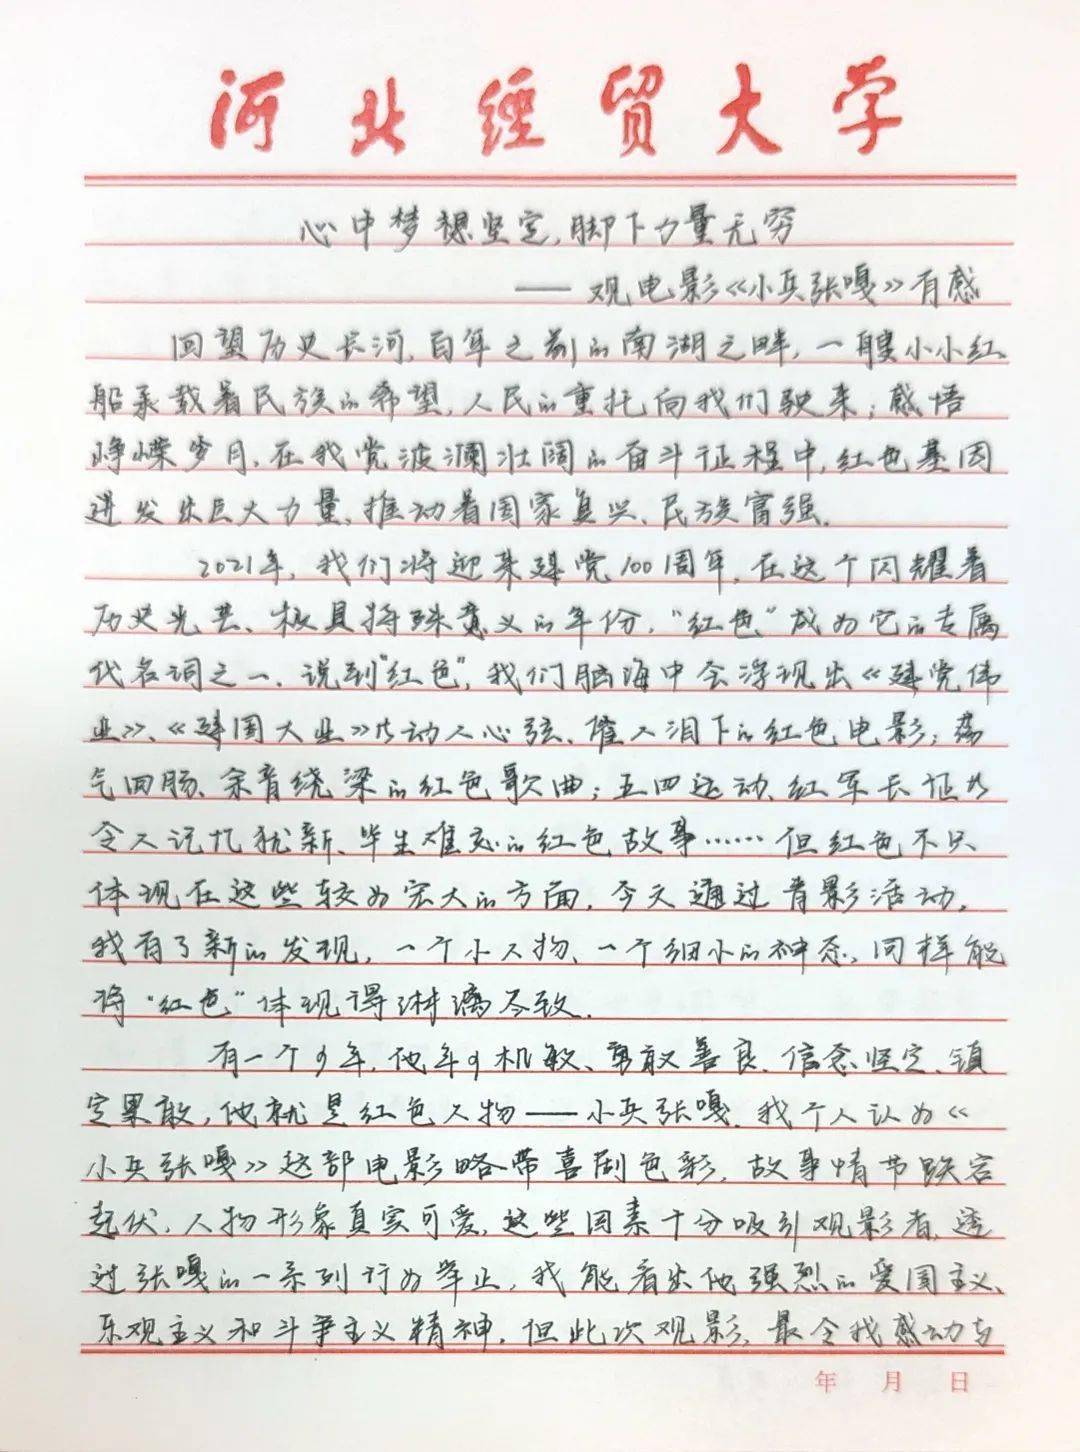 河北经贸大学
心中梦想坚定,脚下力量无穷
——观电影《小兵张嘎》有感
回望历史长河,百年之前的南湖之畔,一艘小小红
船承载着民族的希望,人民的重托向我们驶来;感悟
峥嵘岁月,在我党波澜壮阔的奋斗征程中,红色基因
迸发出巨大力量,推动着国家复兴、民族富强.
2021年,我们将迎来建党100周年,在这个闪耀着
历史光芒、极具特殊意义的年份,"红色"成为它的专属
代名词之一.说到"红色",我们脑海中会浮现出《建党伟
业》、《建国大业》等动人心弦、催人泪下的红色电影;荡
气回肠、余音绕梁的红色歌曲;五四运动、红军长征等
令人记忆犹新、毕生难忘的红色故事……但红色不只
体现在这些较为宏大的方面,今天通过观影活动,
我有了新的发现,一个小人物、一个细小的神态,同样能
将"红色"体现得淋漓尽致.
有一个少年,他年少机敏、勇敢善良、信念坚定、镇
定果敢,他就是红色人物——小兵张嘎.我个人认为《
小兵张嘎》这部电影略带喜剧色彩,故事情节跌宕
起伏,人物形象真实可爱,这些因素十分吸引观影者,透
过张嘎的一系列行为举止,我能看出他强烈的爱国主义、
乐观主义和斗争主义精神,但此次观影,最令我感动与
年 月 日